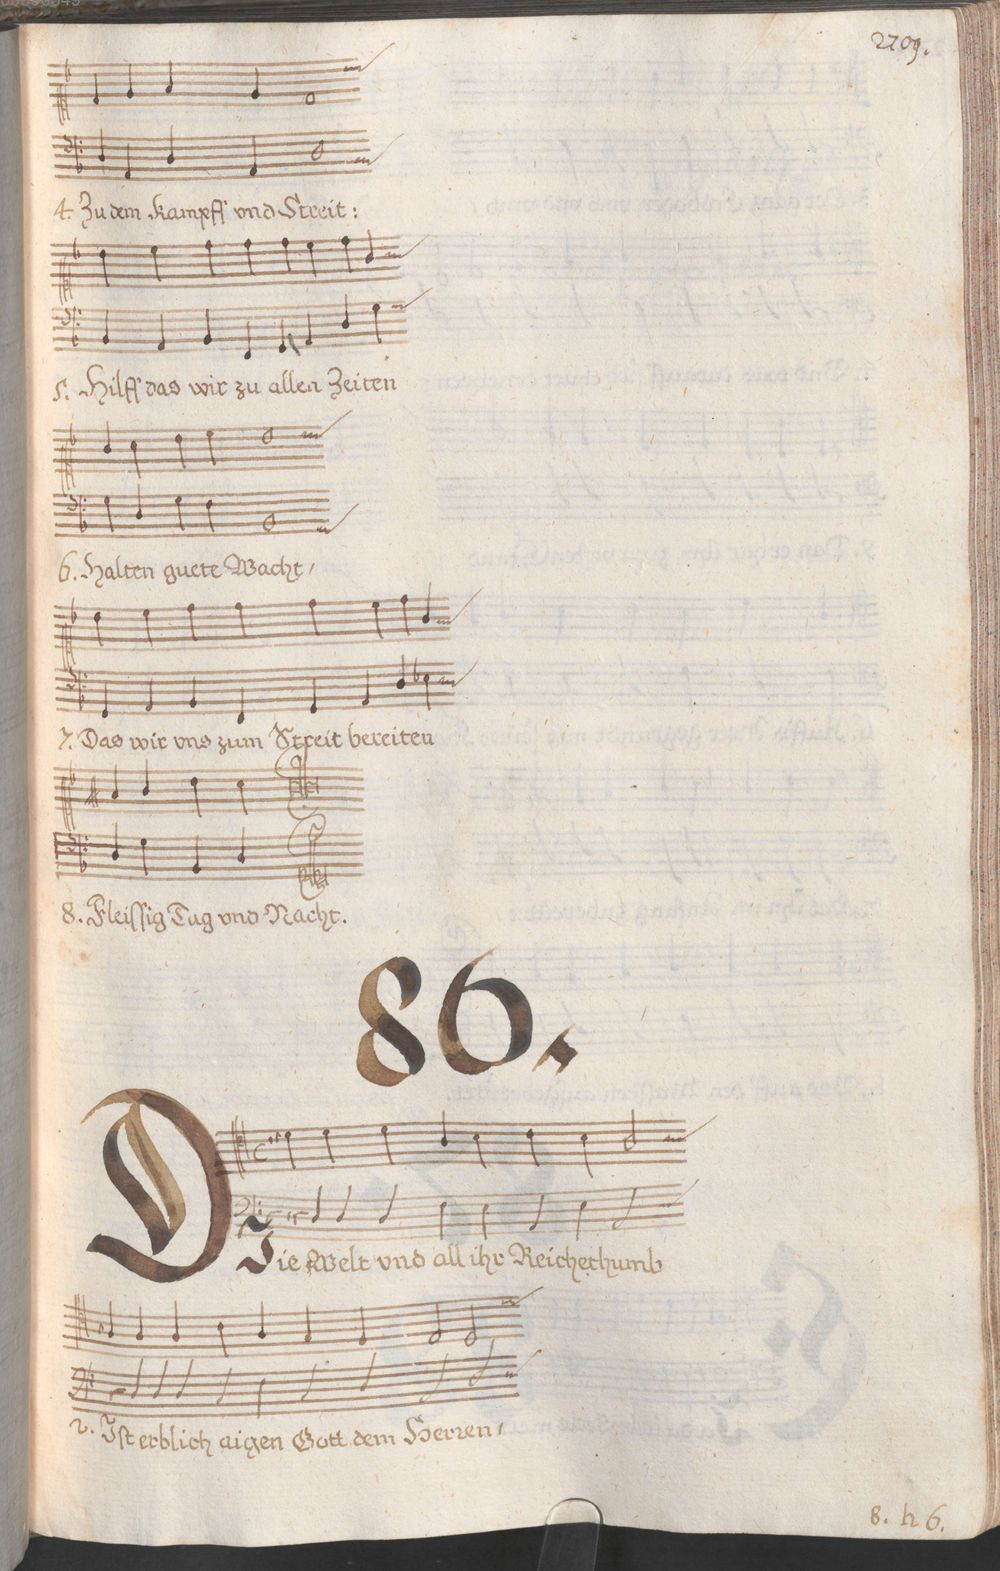 2709.
4. Zu dem Kampff vnd Streit:
5. Hilff das wir zu allen Zeiten
6. Halten guete Wacht,
7. Das wir vns zum Streit bereiten
8. Fleissig Tag vnd Nacht.
86.
DIe Welt vnd all ihr Reichethumb
2. Ist erblich aigen Gott dem Herren,
8. h 6.